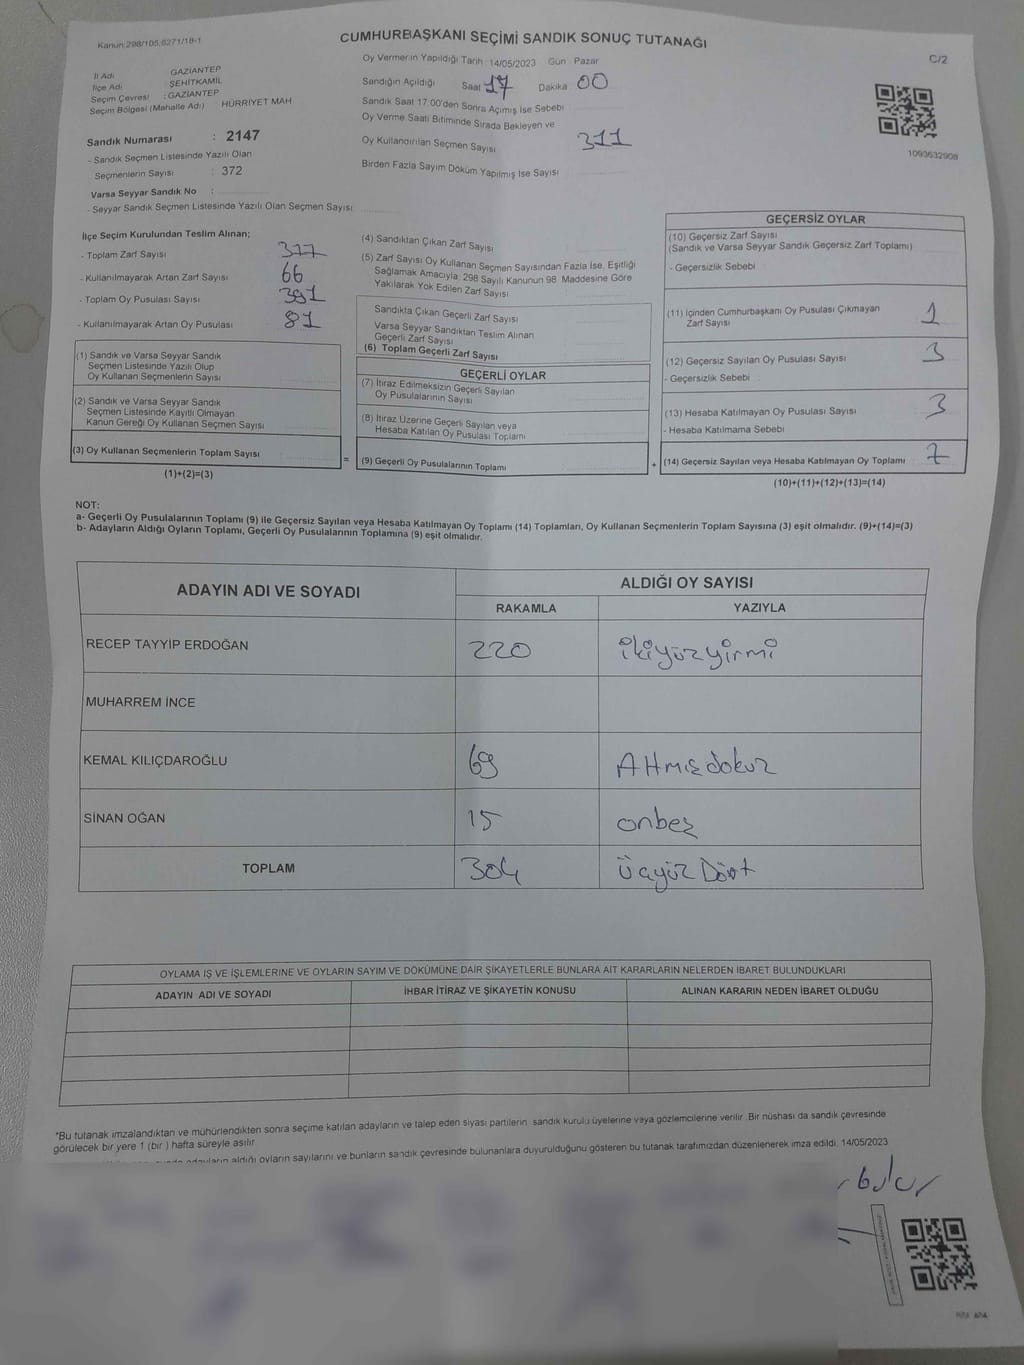 Kanun:298/105,6271/18-1
CUMHURBAŞKANI SEÇİMİ SANDIK SONUÇ TUTANAĞI
C/2
İl Adı GAZİANTEP
İlçe Adı ŞEHİTKAMİL
Seçim Çevresi : GAZİANTEP
Seçim Bölgesi (Mahalle Adı) : HÜRRİYET MAH
Oy Vermenin Yapıldığı Tarih : 14/05/2023 Gün : Pazar
Sandığın Açıldığı Saat 17 Dakika 00
Sandık Saat 17:00'den Sonra Açımış İse Sebebi
Oy Verme Saati Bitiminde Sırada Bekleyen ve
Oy Kullandırılan Seçmen Sayısı 311
Birden Fazla Sayım Döküm Yapılmış İse Sayısı
1093632908
Sandık Numarası : 2147
- Sandık Seçmen Listesinde Yazılı Olan
Seçmenlerin Sayısı : 372
Varsa Seyyar Sandık No :
- Seyyar Sandık Seçmen Listesinde Yazılı Olan Seçmen Sayısı:
İlçe Seçim Kurulundan Teslim Alınan;
- Toplam Zarf Sayısı 377
- Kullanılmayarak Artan Zarf Sayısı 66
- Toplam Oy Pusulası Sayısı 391
- Kullanılmayarak Artan Oy Pusulası 81
(1) Sandık ve Varsa Seyyar Sandık
Seçmen Listesinde Yazılı Olup
Oy Kullanan Seçmenlerin Sayısı
(2) Sandık ve Varsa Seyyar Sandık
Seçmen Listesinde Kayıtlı Olmayan
Kanun Gereği Oy Kullanan Seçmen Sayısı
(3) Oy Kullanan Seçmenlerin Toplam Sayısı
(1)+(2)=(3)
=
(4) Sandıktan Çıkan Zarf Sayısı
(5) Zarf Sayısı Oy Kullanan Seçmen Sayısından Fazla İse, Eşitliği
Sağlamak Amacıyla, 298 Sayılı Kanunun 98. Maddesine Göre
Yakılarak Yok Edilen Zarf Sayısı
Sandıkta Çıkan Geçerli Zarf Sayısı
Varsa Seyyar Sandıktan Teslim Alınan
Geçerli Zarf Sayısı
(6) Toplam Geçerli Zarf Sayısı
GEÇERLİ OYLAR
(7) İtiraz Edilmeksizin Geçerli Sayılan
Oy Pusulalarının Sayısı
(8) İtiraz Üzerine Geçerli Sayılan veya
Hesaba Katılan Oy Pusulası Toplamı
(9) Geçerli Oy Pusulalarının Toplamı
+
GEÇERSİZ OYLAR
(10) Geçersiz Zarf Sayısı
(Sandık ve Varsa Seyyar Sandık Geçersiz Zarf Toplamı)
- Geçersizlik Sebebi
(11) İçinden Cumhurbaşkanı Oy Pusulası Çıkmayan
Zarf Sayısı 1
(12) Geçersiz Sayılan Oy Pusulası Sayısı 3
- Geçersizlik Sebebi
(13) Hesaba Katılmayan Oy Pusulası Sayısı 3
- Hesaba Katılmama Sebebi
(14) Geçersiz Sayılan veya Hesaba Katılmayan Oy Toplamı 7
(10)+(11)+(12)+(13)=(14)
NOT:
a- Geçerli Oy Pusulalarının Toplamı (9) ile Geçersiz Sayılan veya Hesaba Katılmayan Oy Toplamı (14) Toplamları, Oy Kullanan Seçmenlerin Toplam Sayısına (3) eşit olmalıdır. (9)+(14)=(3)
b- Adayların Aldığı Oyların Toplamı, Geçerli Oy Pusulalarının Toplamına (9) eşit olmalıdır.
ADAYIN ADI VE SOYADI
ALDIĞI OY SAYISI
RAKAMLA YAZIYLA
RECEP TAYYİP ERDOĞAN 220 ikiyüzyirmi
MUHARREM İNCE
KEMAL KILIÇDAROĞLU 69 Altmışdokuz
SİNAN OĞAN 15 onbeş
TOPLAM 304 ÜçyüzDört
OYLAMA İŞ VE İŞLEMLERİNE VE OYLARIN SAYIM VE DÖKÜMÜNE DAİR ŞİKAYETLERLE BUNLARA AİT KARARLARIN NELERDEN İBARET BULUNDUKLARI
ADAYIN ADI VE SOYADI İHBAR İTİRAZ VE ŞİKAYETİN KONUSU ALINAN KARARIN NEDEN İBARET OLDUĞU
*Bu tutanak imzalandıktan ve mühürlendikten sonra seçime katılan adayların ve talep eden siyasi partilerin sandık kurulu üyelerine veya gözlemcilerine verilir. Bir nüshası da sandık çevresinde
görülecek bir yere 1 (bir ) hafta süreyle asılır.
adayların aldığı oyların sayılarını ve bunların sandık çevresinde bulunanlara duyurulduğunu gösteren bu tutanak tarafımızdan düzenlenerek imza edildi. 14/05/2023